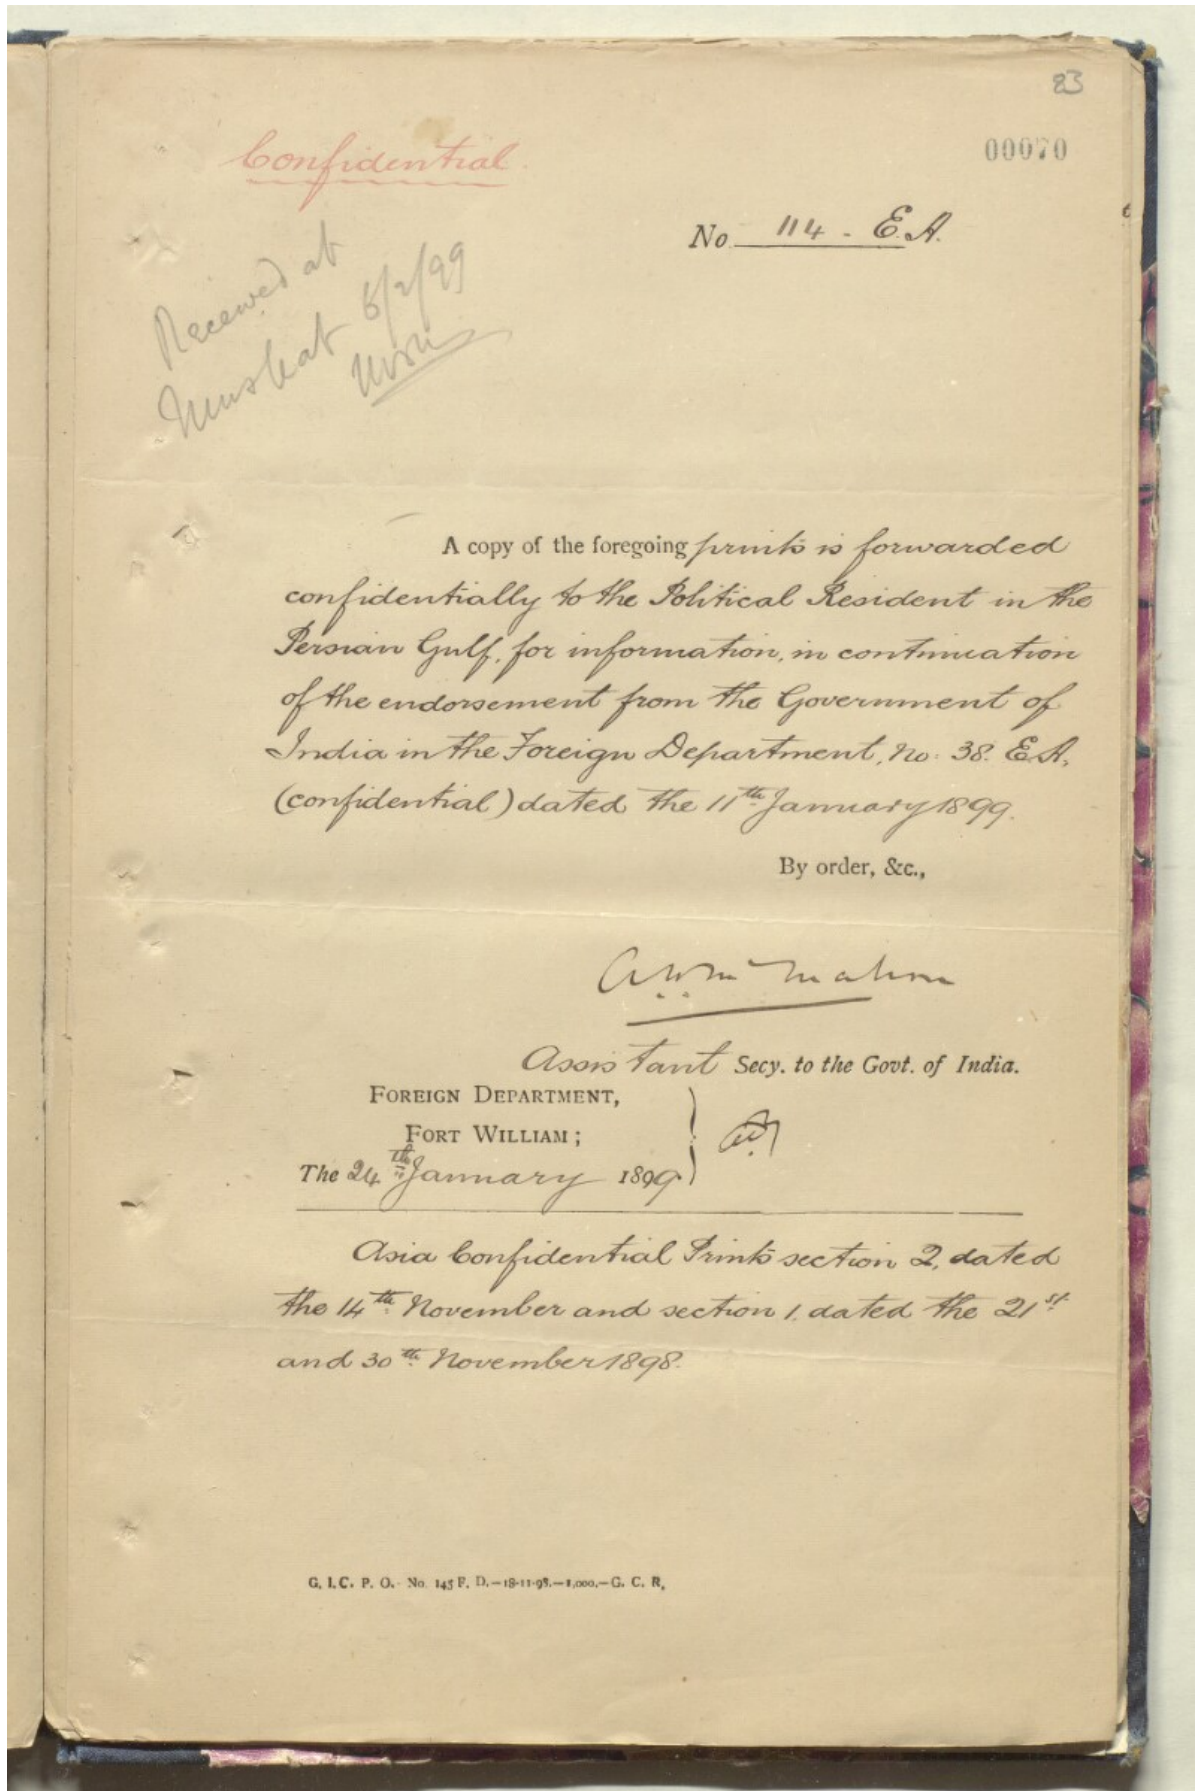 83
00070
Confidential.
No 114 - E.A.
Received at
Muskat 8/2/99
A copy of the foregoing prints is forwarded
confidentially to the Political Resident in the
Persian Gulf, for information, in continuation
of the endorsement from the Government of
India in the Foreign Department, No. 38. E.A.
(confidential) dated the 11th January 1899.
By order, &c.,
Assistant Secy. to the Govt. of India.
FOREIGN DEPARTMENT,
FORT WILLIAM;
The 24th January 1899.
Asia Confidential Prints section 2, dated
the 14th November and section 1, dated the 21st
and 30th November 1898.
G. I. C. P. O. No. 145 F. D.—18-11-98.—1,000.—G. C. R.